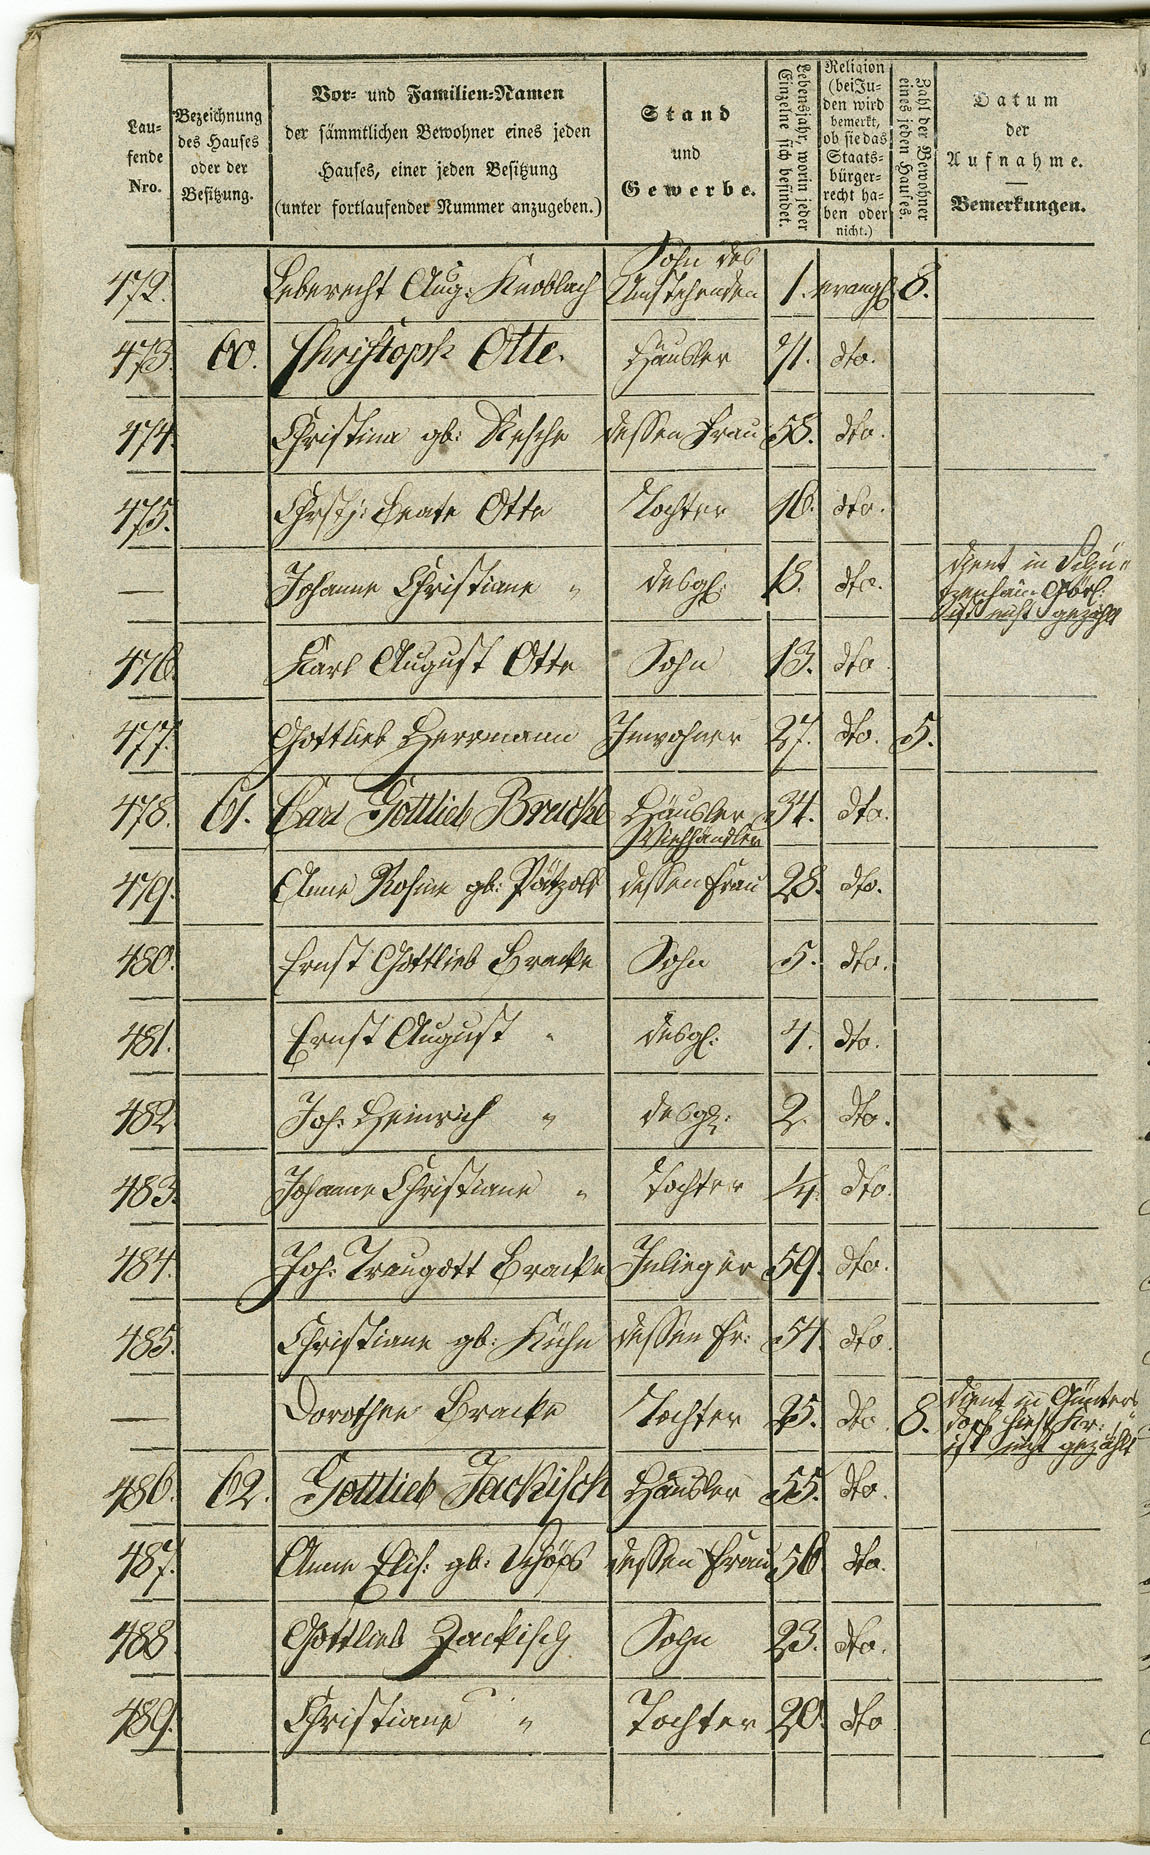 Lau-
fende
Nro.
Bezeichnung
des Hauses
oder der
Besitzung.
Vor- und Familien-Namen
der sämmtlichen Bewohner eines jeden
Hauses, einer jeden Besitzung
(unter fortlaufender Nummer anzugeben.)
Stand
und
Gewerbe.
Lebensjahr, worin jeder
Einzelne sich befindet.
Religion
(bei Ju-
den wird
bemerkt,
ob sie das
Staats-
bürger-
recht ha-
ben oder
nicht.)
Zahl der Bewohner
eines jeden Hauses.
Datum
der
Aufnahme.
Bemerkungen.
Sohn des
472. Leberecht Aug: Knoblach Umstehenden 1. evangl. 8.
473. 60. Christoph Otte. Häusler 71. dto.
474. Christina gb: Nesche dessen Frau 58. dto.
475. Beate Otte Tochter 16. dto.
— Johanne Christiane " desgl. 18. dto. dient in
ist nicht gezählt
476. Karl August Otte Sohn 13. dto
477. Gottlieb Herrmann Inwohner 27. dto. 5.
478. 61. Carl Gottlieb Bracke Häusler 34. dto.
Viehhändler
479. Anne Rosine gb: Pätzold dessen Frau 28. dto.
480. Ernst Gottlieb Bracke Sohn 5. dto.
481. Ernst August " desgl. 4. dto.
482 Joh: Heinrich " desgl: 2. dto.
483. Johanne Christiane " Tochter dto.
484. Joh: Traugott Bracke Inlieger 59. dto.
485. Christiane gb: Kühn dessen Fr: 54. dto
— Dorothee Bracke Tochter 25. dto 8. dient in Günters
dorf hies. Kr:
ist nicht gezählt
486. 62. Gottlieb Jackisch Häusler 55. dto.
487. Anne Elis: gb: Schöps dessen Frau 56 dto.
488 Gottlieb Jackisch Sohn 23. dto.
489. Christiane " Tochter 20. dto